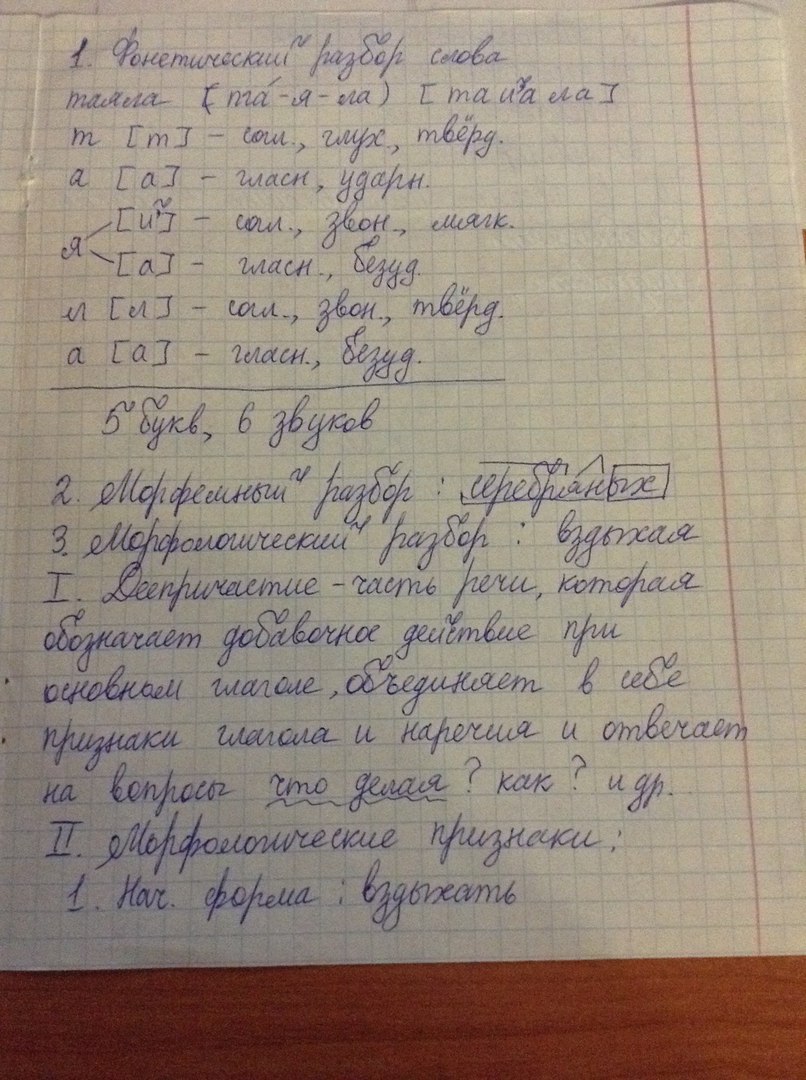 1. Фонетический разбор слова
таяла (та́-я-ла) [тай'ала]
т [т] – согл., глух., твёрд.
а [а] – гласн., ударн.
я [й'] – согл., звон., мягк.
[а] – гласн., безуд.
л [л] – согл., звон., твёрд.
а [а] – гласн., безуд.
5 букв, 6 звуков
2. Морфемный разбор : серебряных
3. Морфологический разбор : вздыхая
I. Деепричастие – часть речи, которая
обозначает добавочное действие при
основном глаголе, объединяет в себе
признаки глагола и наречия и отвечает
на вопросы что делая? как? и др.
II. Морфологические признаки:
1. Нач. форма : вздыхать